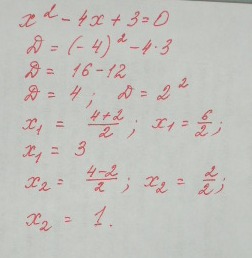 x² - 4x + 3 = 0
D = (-4)² - 4·3
D = 16 - 12
D = 4; D = 2²
x₁ = (4+2)/2; x₁ = 6/2;
x₁ = 3
x₂ = (4-2)/2; x₂ = 2/2;
x₂ = 1.